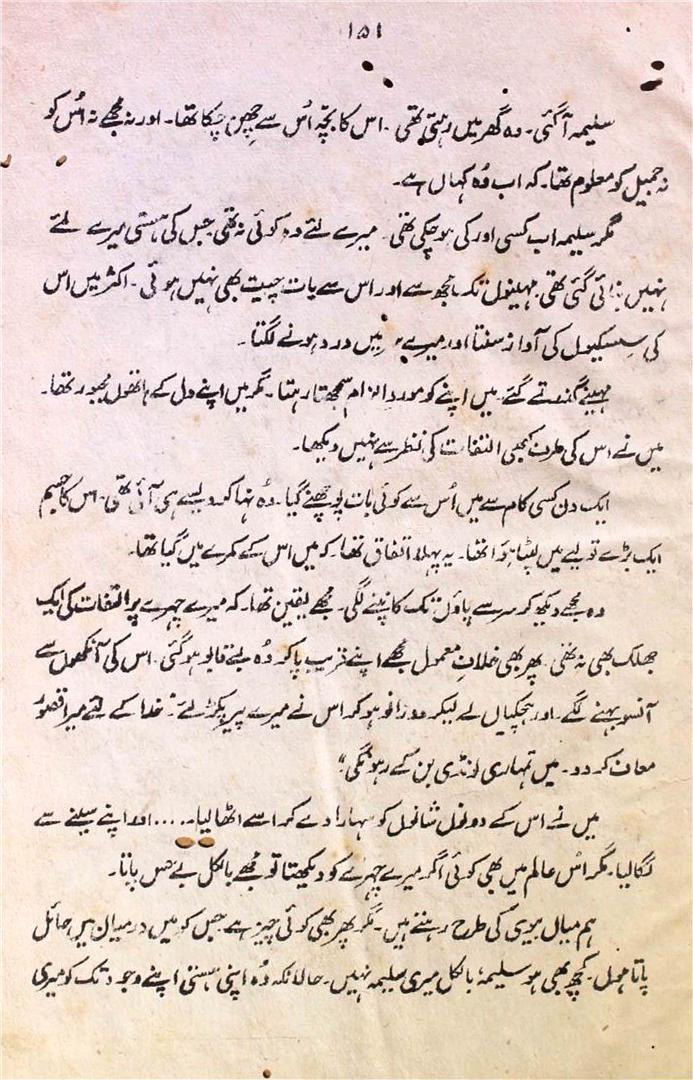 ۱۵۱
سلیمہ آ گئی۔ وہ گھر میں رہتی تھی۔ اس کا بچہ اُس سے چھِن چکا تھا۔ اور نہ مجھے نہ اُس کو
نہ جمیل کو معلوم تھا۔ کہ اب وُہ کہاں ہے۔
مگر سلیمہ اب کسی اور کی ہو چکی تھی۔ میرے لئے وہ کوئی نہ تھی جس کی ہستی میرے لئے
نہیں بنائی گئی تھی۔ مہینوں تک مجھ سے اور اس سے بات چیت بھی نہیں ہوئی۔ اکثر میں اس
کی سسکیوں کی آواز سنتا اور میرے میں درد ہونے لگتا۔
مہینے گذرتے گئے۔ میں اپنے کو موردِ الزام سمجھتا رہتا۔ مگر میں اپنے دل کے ہاتھوں مجبور تھا۔
میں نے اس کی طرف کبھی التفات کی نظر سے نہیں دیکھا۔
ایک دن کسی کام سے میں اُس سے کوئی بات پوچھنے گیا۔ وُہ نہا کر ویسے ہی آئی تھی۔ اس کا جسم
ایک بڑے تولیے میں لپٹا ہؤا تھا۔ یہ پہلا اتفاق تھا۔ کہ میں اس کے کمرے میں گیا تھا۔
وہ مجھے دیکھ کر سر سے پاؤں تک کانپنے لگی۔ مجھے یقین تھا۔ کہ میرے چہرے پر التفات کی ایک
جھلک بھی نہ تھی۔ پھر بھی خلافِ معمول مجھے اپنے قریب پا کر وُہ بے قابو ہو گئی۔ اس کی آنکھوں سے
آنسو بہنے لگے۔ اور ہچکیاں لے لیکر دو زانو ہو کر اس نے میرے پیر پکڑ لئے۔ "خدا کے لئے میرا قصور
معاف کر دو۔ میں تمہاری لونڈی بن کے رہونگی"
میں نے اس کے دونوں شانوں کو سہارا دے کر اسے اٹھا لیا۔.... اور اپنے سینے سے
لگا لیا۔ مگر اس عالم میں بھی کوئی اگر میرے چہرے کو دیکھتا تو مجھے بالکل بے حِس پاتا۔
ہم میاں بیوی کی طرح رہتے ہیں۔ مگر پھر بھی کوئی چیز ہے جس کو میں درمیان میں حائل
پاتا ہوں۔ کچھ بھی ہو سلیمہ بالکل میری سلیمہ نہیں۔ حالانکہ وُہ اپنی ہستی اپنے وجود تک کو میری